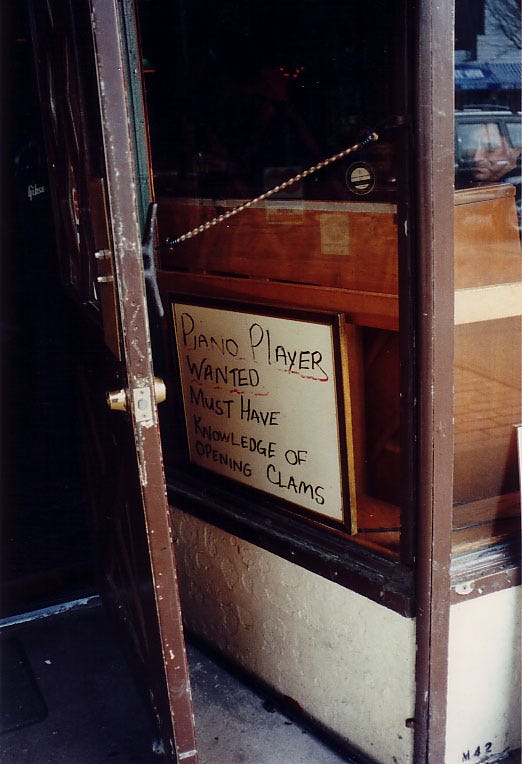 Gibson
PIANO PLAYER
WANTED
MUST HAVE
KNOWLEDGE OF
OPENING CLAMS
M42